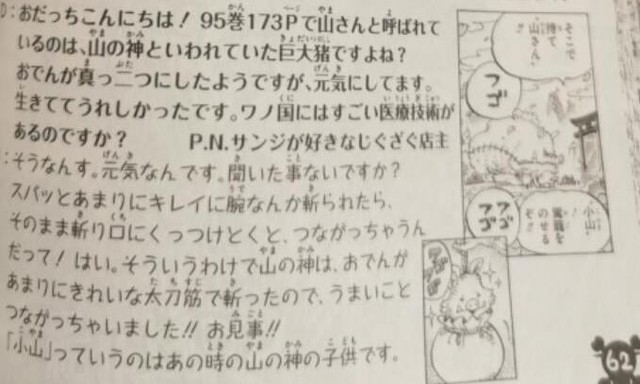 D：おだっちこんにちは！ 95巻173Pで山さんと呼ばれて
いるのは、山の神といわれていた巨大猪ですよね？
おでんが真っ二つにしたようですが、元気にしてます。
生きててうれしかったです。ワノ国にはすごい医療技術が
あるのですか？ P.N.サンジが好きなじぐざぐ店主
：そうなんす。元気なんです。聞いた事ないですか？
スパッとあまりにキレイに腕なんか斬られたら、
そのまま斬り口にくっつけとくと、つながっちゃうん
だって！ はい。そういうわけで山の神は、おでんが
あまりにきれいな太刀筋で斬ったので、うまいこと
つながっちゃいました!! お見事!!
「小山」っていうのはあの時の山の神の子供です。
そこで
待て
山さん！
フゴ
小山！
篭を
のせる
ぞ！
フゴ
フゴ
62